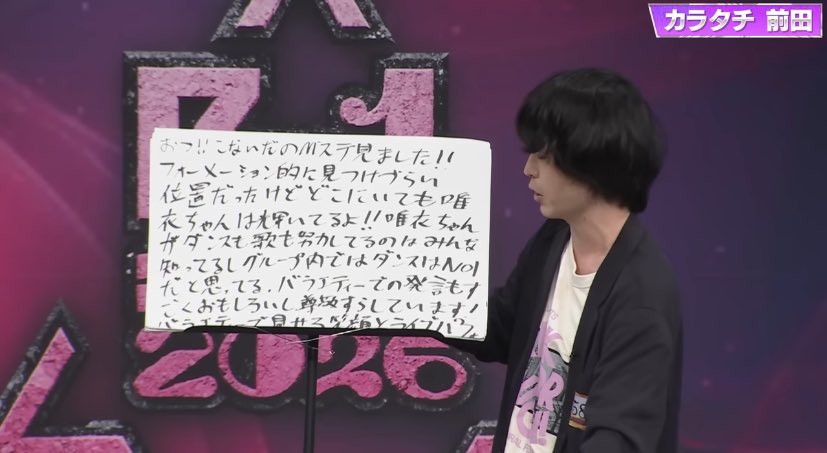 カラタチ 前田
R-1
おつ!!こないだのMステ見ました!!
フォーメーション的に見つけづらい
位置だったけどどこにいても唯
衣ちゃんは輝いてるよ!!唯衣ちゃん
がダンスも歌も努力してるのはみんな
知ってるしグループ内ではダンスはNO1
だと思ってる、バラエティーでの発言もす
ごくおもしろいし尊敬すらしています!
バラエティーで見せる笑顔とライブパフォ
2026